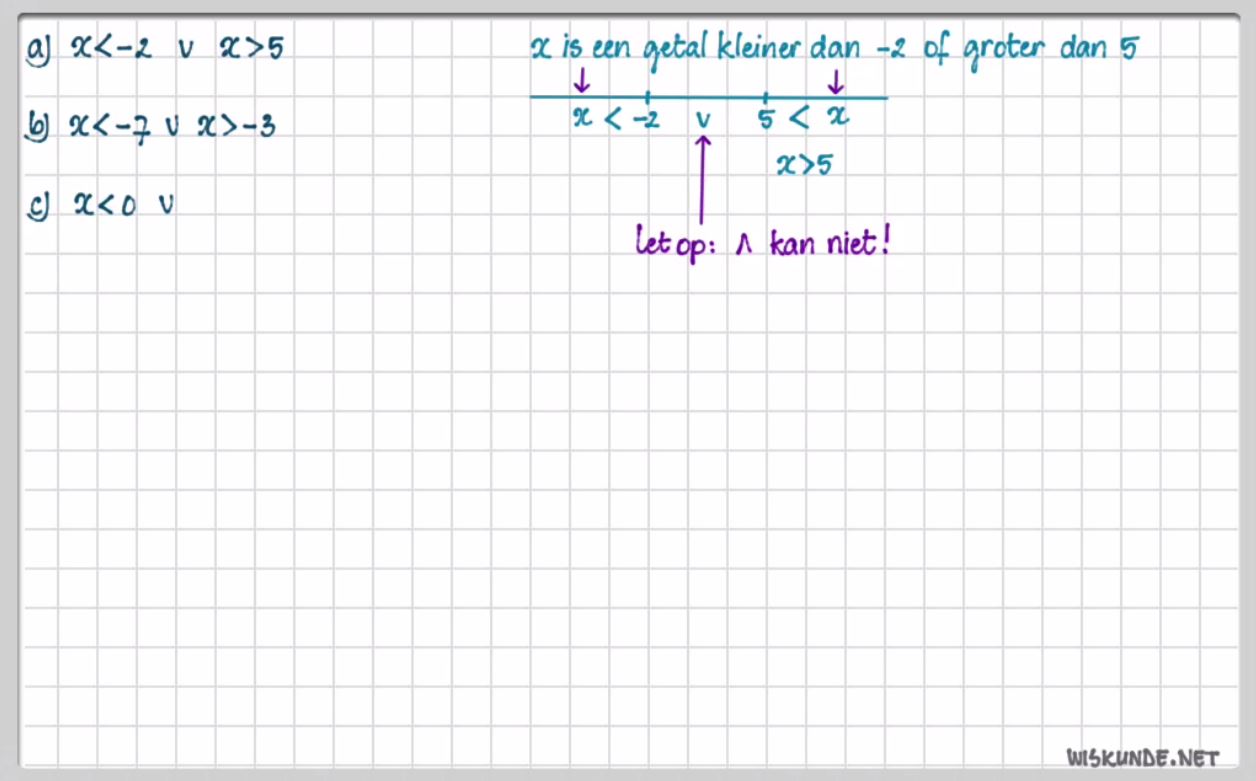 a) x<-2 v x>5
b) x<-7 v x>-3
c) x<0 v
x is een getal kleiner dan -2 of groter dan 5
↓ ↓
x < -2 v 5 < x
x>5
↑
let op: ∧ kan niet!
WISKUNDE.NET